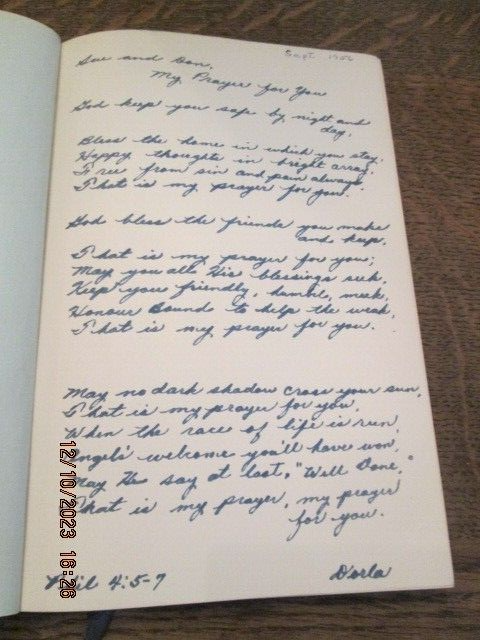 Sept 1956
Sue and Don,
My Prayer for You
God keep you safe by night and
day,
Bless the home in which you stay;
Happy thoughts in bright array;
Free from sin and pain always
That is my prayer for you.
God bless the friends you make
and keep,
That is my prayer for you;
May you all His blessings seek,
Keep you friendly, humble, meek,
Honour Bound to help the weak,
That is my prayer for you.
May no dark shadow cross your sun,
That is my prayer for you,
When the race of life is run,
Angels' welcome you'll have won,
May He say at last, "Well Done,"
That is my prayer, my prayer
for you.
Phil 4:5-7
Dorla
12/10/2023 16:26